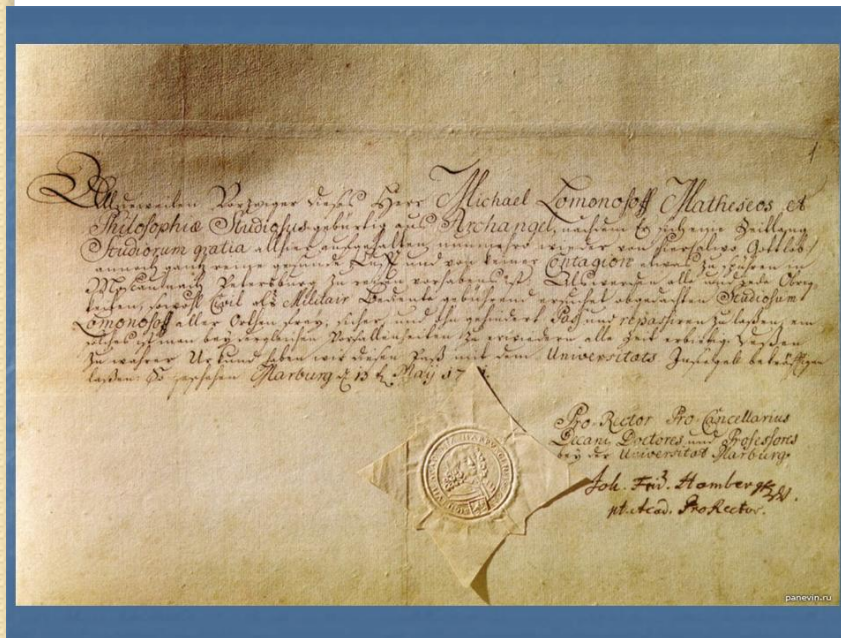 Alldieweilen Vorzeiger dieses Herr Michael Lomonosoff Matheseos et
Philosophiæ Studiosus gebürtig aus Archangel, nachdem Er sich eine Zeitlang
Studiorum gratia allhier aufgehalten, nunmehro wieder von hier Gottlob
annoch gantz reine gesunde Lufft und von keiner Contagion etwas zu spühren in
nach Petersburg zu reisen vorhabens ist. Als werden alle und jede
sowohl Civil als Militair Bediente gebührend ersuchet obgedachten Studiosum
Lomonosoff aller Orthen frey, sicher, und ohngehindert Pass und repassiren zu laßen, ein
solches ist man bey dergleichen Vorfallenheiten zu erwiedern alle Zeit erbietig. Deßen
zu wahrer Urkund haben wir diesen Paß mit dem Universitäts Insiegel
laßen. So geschehen Marburg d 13 May 17
Pro-Rector Pro-Cancellarius
Decani, Doctores und Professores
bey der Universität Marburg.
Joh. Frid. Homberg
pt. Acad. ProRector.
panevin.ru